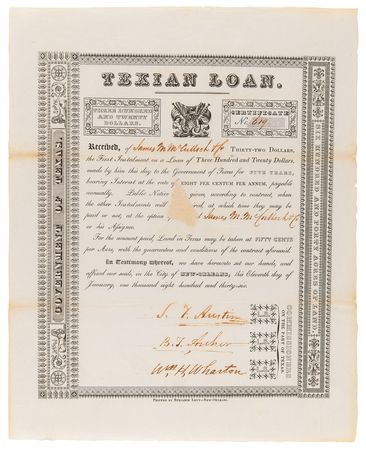 TEXIAN LOAN.
THREE HUNDRED
AND TWENTY
DOLLARS.
CERTIFICATE
No. 614
Received, of James M. McCulloch & Co THIRTY-TWO DOLLARS,
the First Instalment on a Loan of Three Hundred and Twenty Dollars,
made by him this day to the Government of Texas for FIVE YEARS,
bearing Interest at the rate of EIGHT PER CENTUM PER ANNUM, payable
annually. Public Notice given, according to contract, when
the other Instalments will at which time they may be
paid or not, at the option James M. McCulloch & Co
or his Assignee.
For the amount paid, Land in Texas may be taken at FIFTY CENTS
per Acre, with the guarantees and conditions of the contract aforesaid.
In Testimony whereof, we have hereunto set our hands, and
affixed our seals, in the City of NEW-ORLEANS, this Eleventh day of
January, one thousand eight hundred and thirty-six.
S. F. Austin
B. T. Archer
Wm H. Wharton
COMMISSIONERS
ON THE PART OF TEXAS.
GOVERNMENT OF TEXAS.
SIX HUNDRED AND FORTY ACRES OF LAND.
PRINTED BY BENJAMIN LEVY—NEW-ORLEANS.